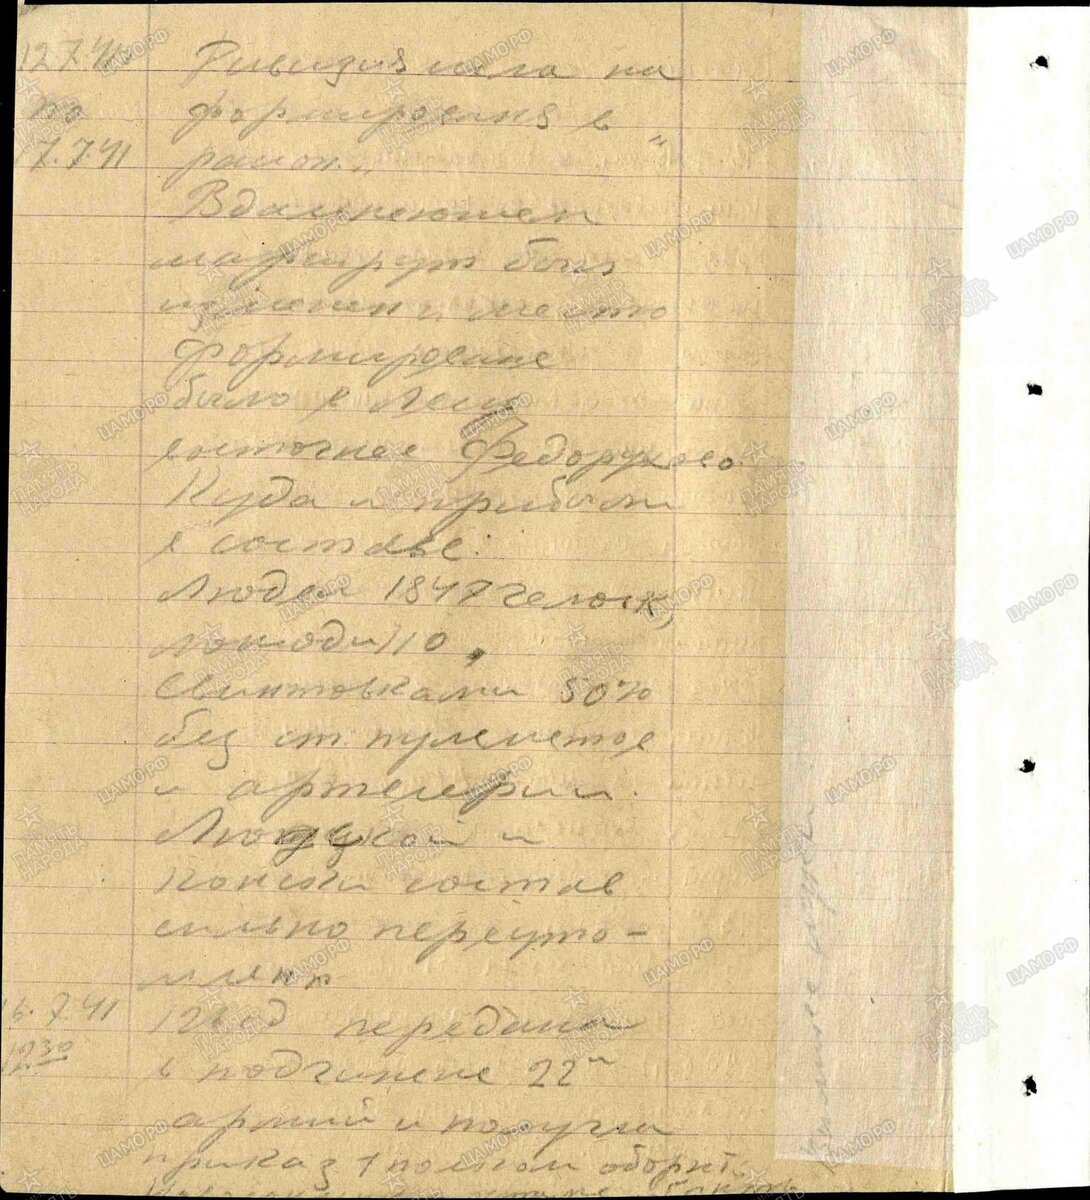 12.7.41
по
17.7.41
Дивизия шла на
формирования в
район "
В дальнейшем
маршрут был
изменен и место
формирование
было в лесу
восточнее Федорухово
Куда и прибыли
в составе:
Людей 1847 человек,
лошадей 110,
Свинтовками 50%
без ст. пулеметов
и артелерии.
Людской и
конски состав
сильно переуто-
млен
16.7.41
12 30
сд передана
в подчинение 22й
армий и получила
приказ 1 полком оборнт.